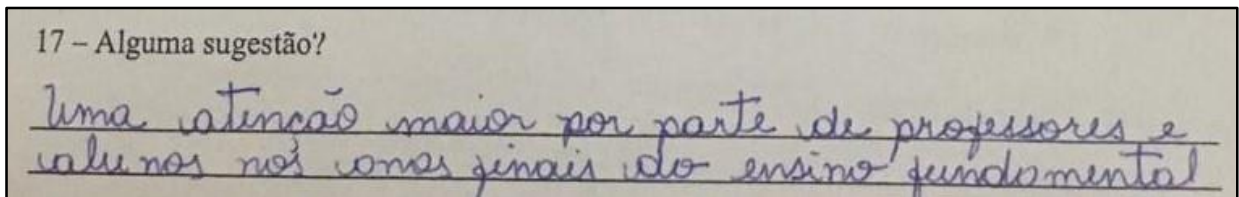 17 – Alguma sugestão?
Uma atenção maior por parte de professores e
alunos nos anos finais do ensino fundamental